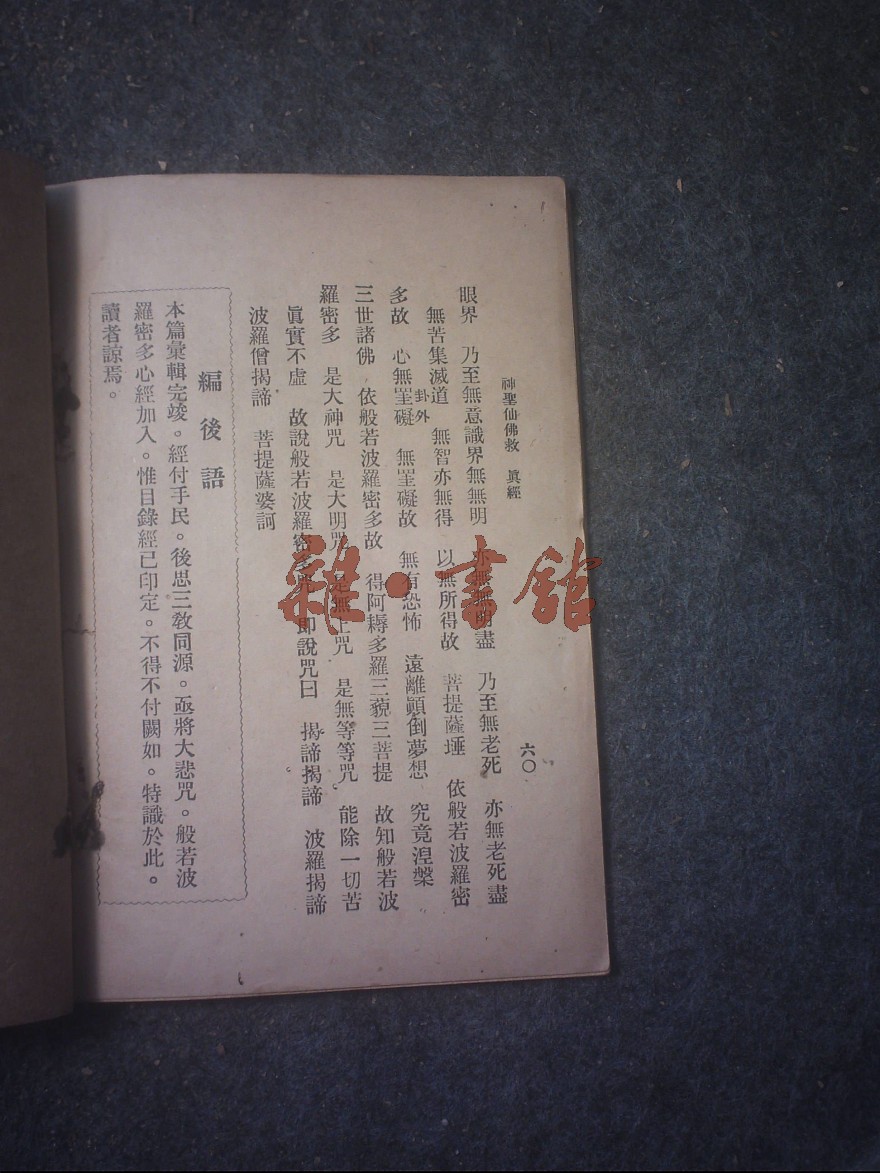 神聖仙佛救　眞經
六〇
眼界　乃至無意識界無無明　亦無無明盡　乃至無老死　亦無老死盡
無苦集滅道　無智亦無得　以無所得故　菩提薩埵　依般若波羅密
多故　心無罣礙　無罣礙故　無有恐怖　遠離顚倒夢想　究竟涅槃
卦外
三世諸佛　依般若波羅密多故　得阿耨多羅三藐三菩提　故知般若波
羅密多　是大神咒　是大明咒　是無上咒　是無等等咒　能除一切苦
眞實不虛　故說般若波羅密多咒　卽說咒曰　揭諦揭諦　波羅揭諦
波羅僧揭諦　菩提薩婆訶
編後語
本篇彙輯完竣。經付手民。後思三敎同源。亟將大悲咒。般若波
羅密多心經加入。惟目錄經已印定。不得不付闕如。特識於此。
讀者諒焉。
雜·書館